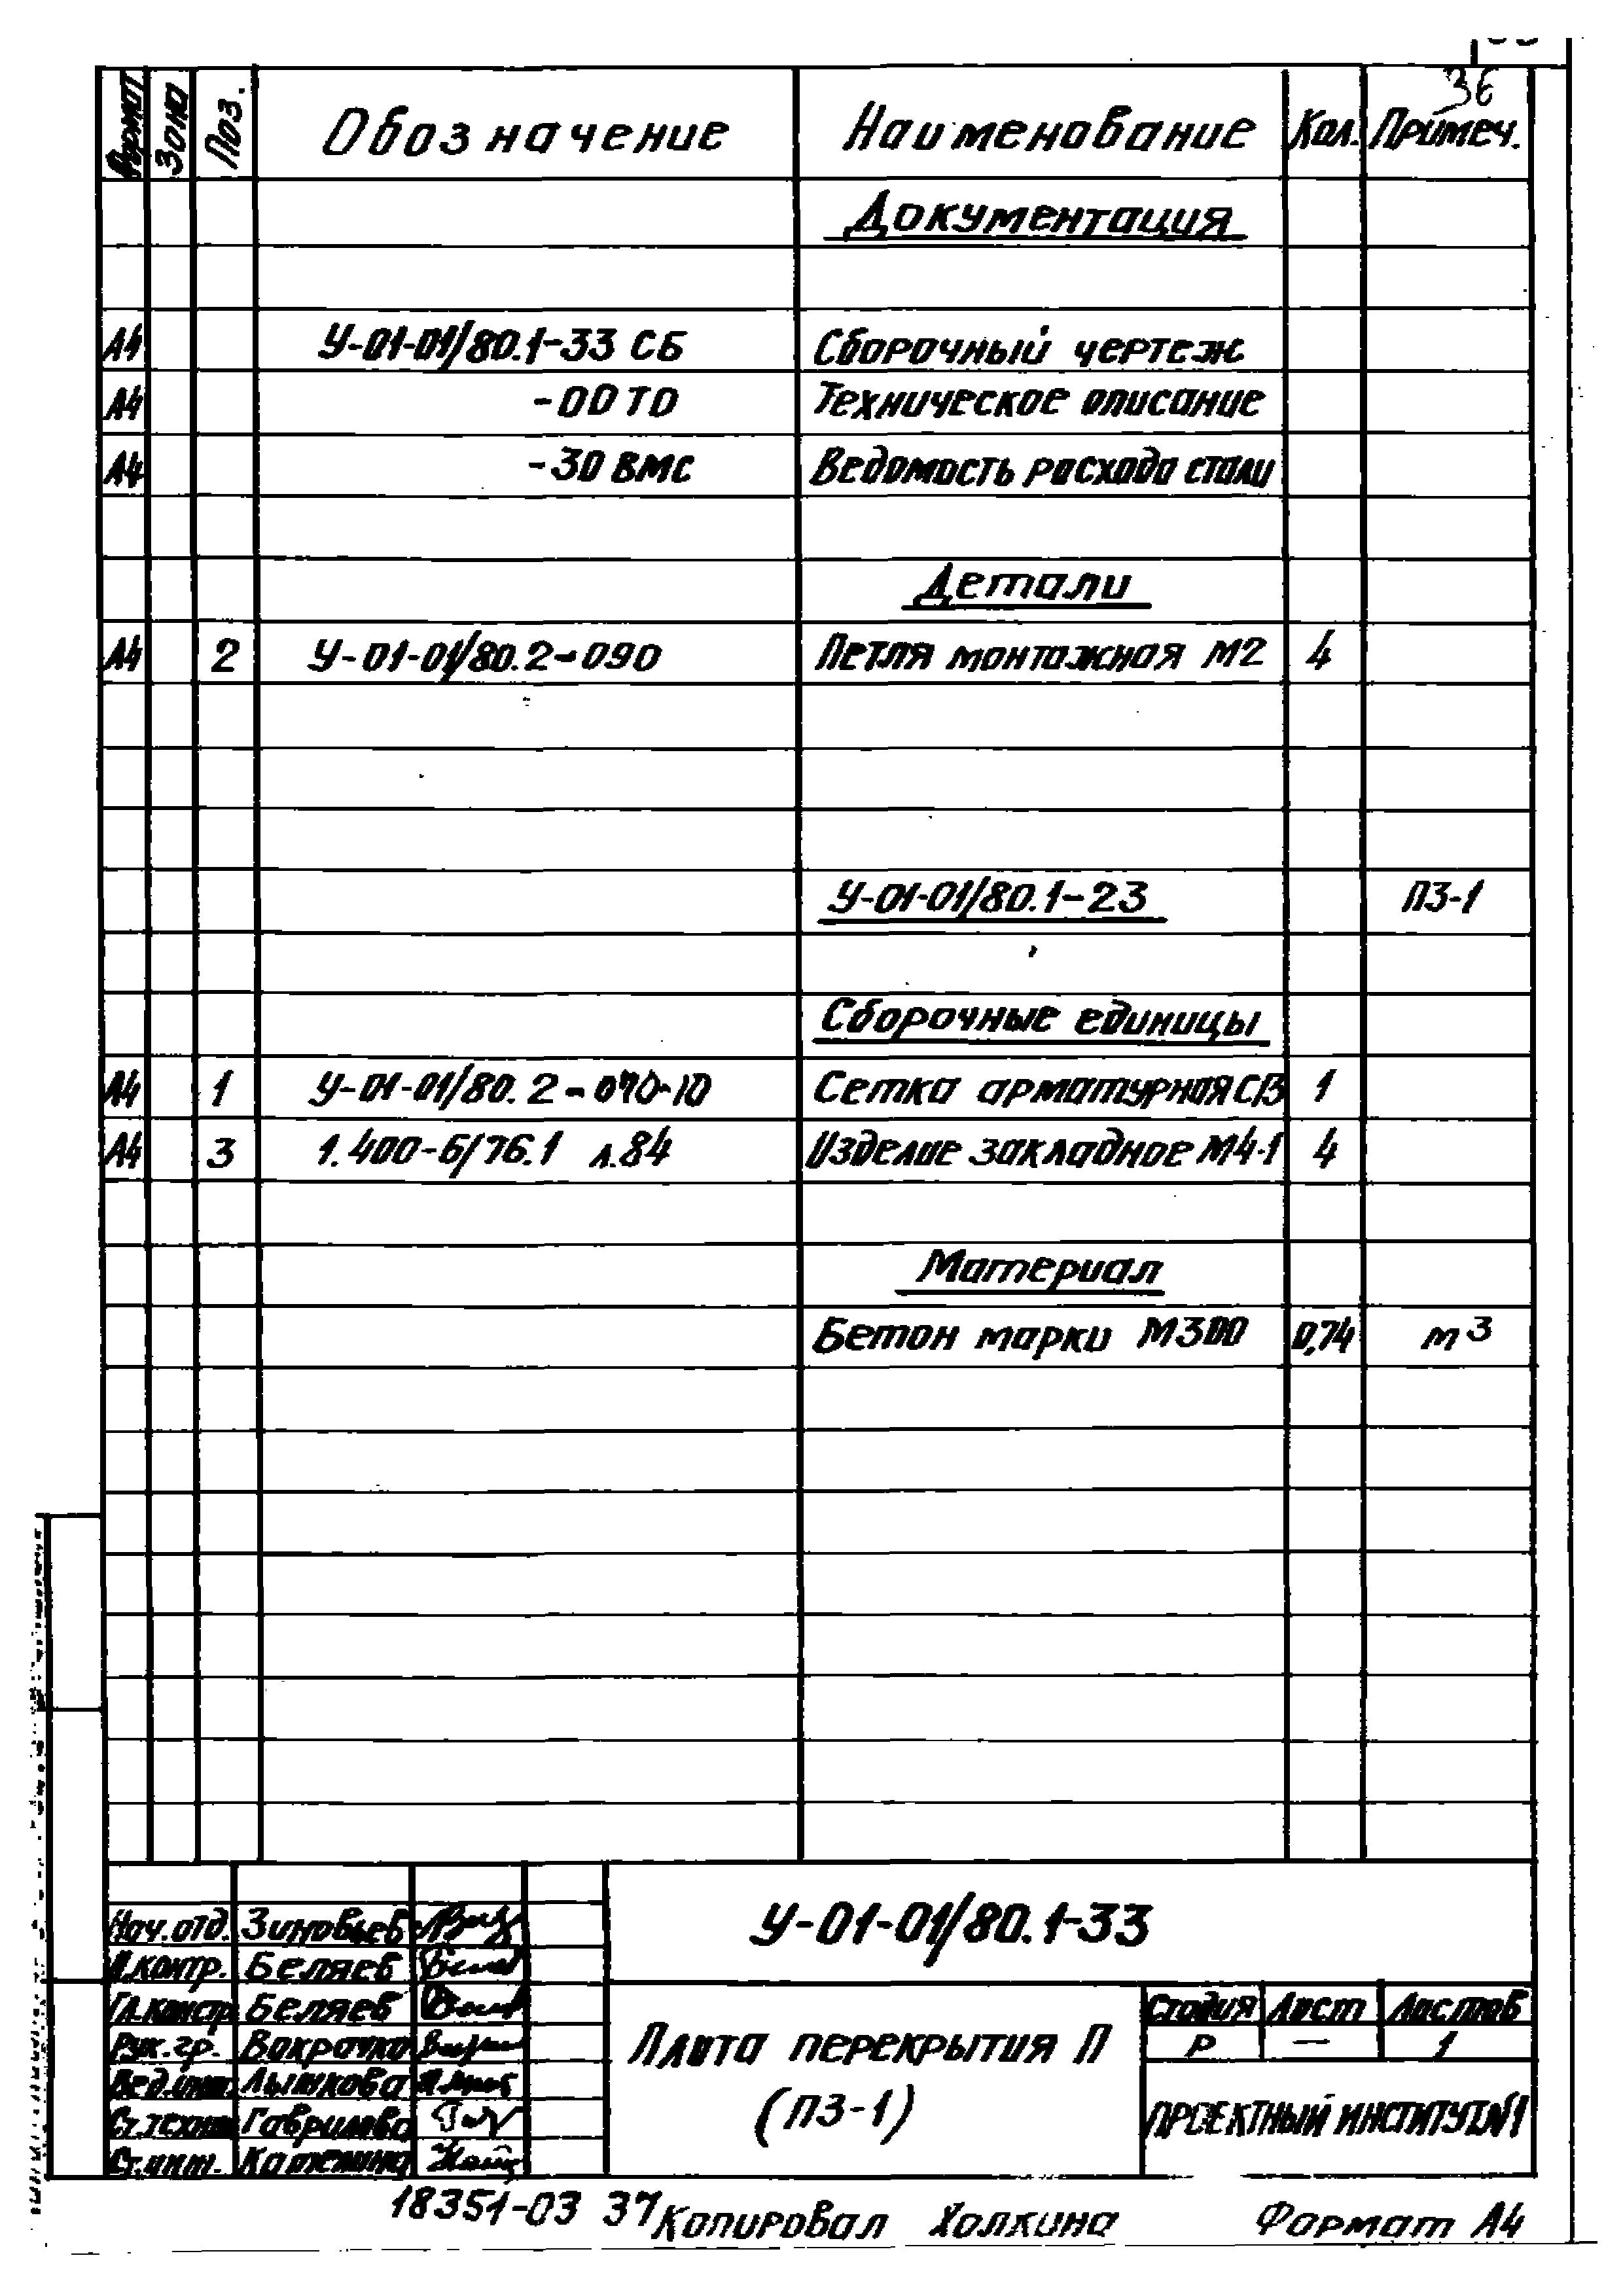 36
Формат Зона Поз. Обозначение Наименование Кол. Примеч.
Документация
А4 У-01-01/80.1-33 СБ Сборочный чертеж
А4 -00 ТО Техническое описание
А4 -30 ВМС Ведомость расхода стали
Детали
А4 2 У-01-01/80.2-090 Петля монтажная М2 4
У-01-01/80.1-23 П3-1
Сборочные единицы
А4 1 У-01-01/80.2-070-10 Сетка арматурная С13 1
А4 3 1.400-6/76.1 л.84 Изделие закладное М4-1 4
Материал
Бетон марки М300 0,74 м3
Нач.отд. Зиновьев
Н.контр. Беляев
Гл.констр. Беляев
Рук.гр.
Вед.инж. Лышкова
Ст.техник Гаврилова
Ст.инж.
У-01-01/80.1-33
Плита перекрытия П
(П3-1)
Стадия Лист Листов
Р — 1
ПРОЕКТНЫЙ ИНСТИТУТ №1
18351-03 37 Копировал Холкина Формат А4